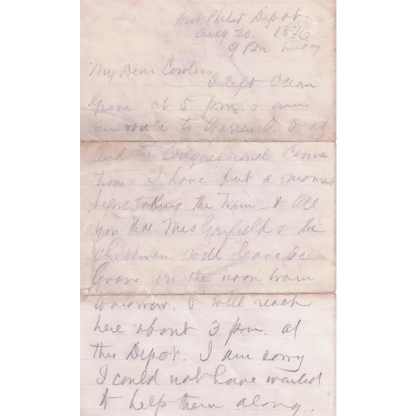 West Philad Depot.
Aug 20. 1876
9 Pm Sunday
My Dear
I left Ocean
Grove at 5 pm, & am
en route to Warren O to at
tend the Congressional Conven
tion. I have but a moment
before taking the train to tell
you that Mrs Garfield & the
children will leave Ocean
Grove on the noon train
tomorrow & will reach
here about 3 pm at
this Depot. I am sorry
I could not have waited
to help them along.